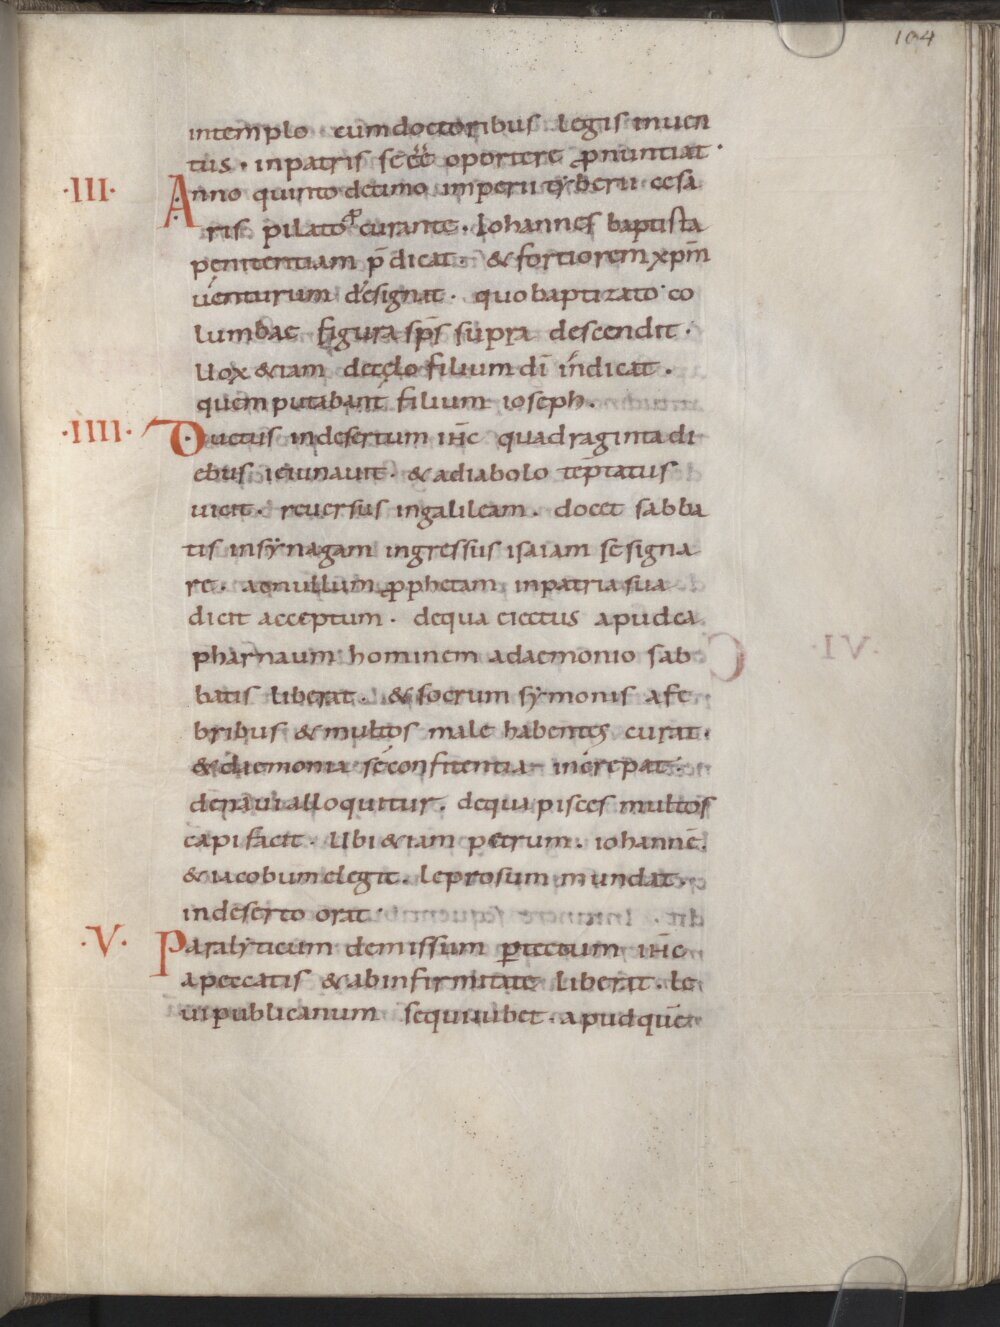 104
intemplo cumdoctoribus legis inuen
tus · inpatris se eē oportere ꝓnuntiat ·
·III· Anno quinto decimo imperii tyberii cesa
ris pilato ꝓcurante · Iohannes baptista
penitentiam p̄dicat · & fortiorem xp̄m
uenturum designat · quo baptizato co
lumbae figura sp̄s supra descendit ·
Uox &iam decęlo filium dī indicat ·
quem putabant filium ioseph ·
·IIII· Ductus indesertum ih̄c quadraginta di
ebus ieiunauit · & adiabolo tēptatus
uicit · reuersus ingalileam · docet sabba
tis insynagam ingressus isaiam sesigna
re · acnullum ꝓphetam inpatria sua
dicit acceptum · dequa eiectus apudca
pharnaum hominem adaemonio sab
batis liberat · & socrum symonis afe
bribus & multos male habentes curat ·
& daemonia se confitentia increpat ·
denaui alloquitur · dequa pisces multos
capi facit · Ubi &iam petrum · iohannē ·
& iacobum elegit · leprosum mundat ·
indeserto orat ·
·V· Paralyticum demissum ꝑtectum ih̄c
apeccatis & abinfirmitate liberat · le
ui publicanum sequi iubet · apud quē